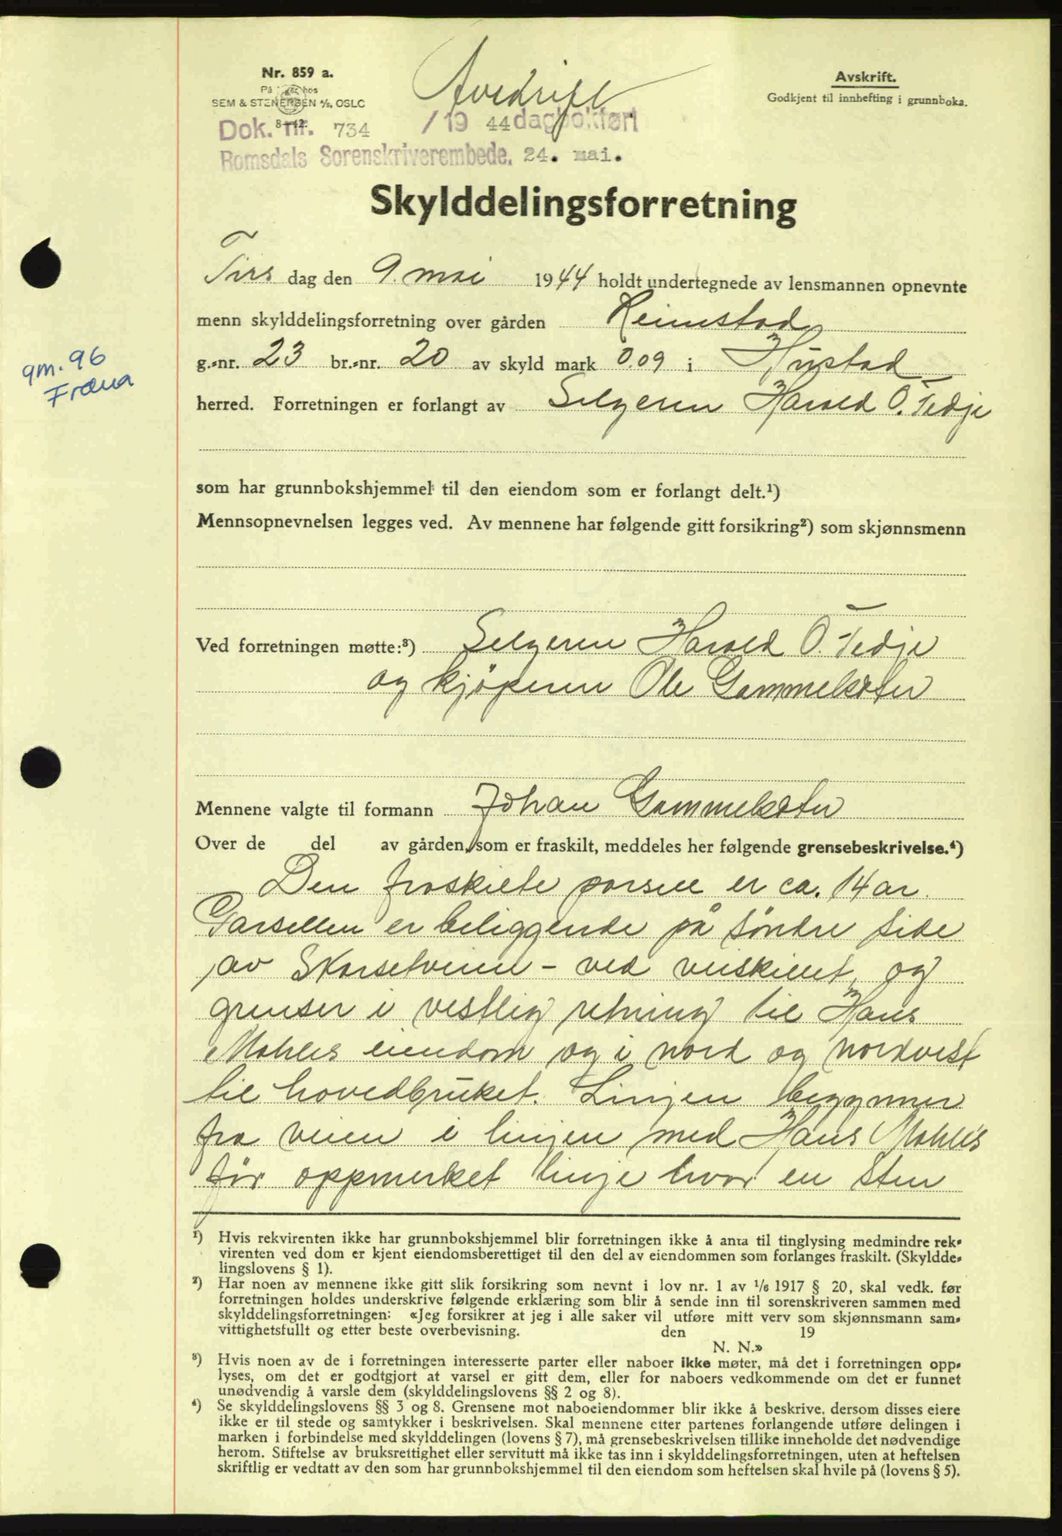 Nr. 859 a.
På hos
SEM & STENERSEN A/S, OSLO
8-42.
Avskrift
Avskrift.
Godkjent til innhefting i grunnboka.
Dok. nr. 734 /19 44 dagbokført
Romsdals Sorenskriverembede. 24. mai.
Skylddelingsforretning
Tirs dag den 9. mai 1944 holdt undertegnede av lensmannen opnevnte
menn skylddelingsforretning over gården Reimstad
g.-nr. 23 br.-nr. 20 av skyld mark 0.09 i Hustad
gm. 96
Fræna
herred. Forretningen er forlangt av Selgeren Harald O. Tedje
som har grunnbokshjemmel til den eiendom som er forlangt delt.¹)
Mennsopnevnelsen legges ved. Av mennene har følgende gitt forsikring²) som skjønnsmenn
Ved forretningen møtte:³) Selgeren Harald O. Tedje
og kjöperen Ole Gammelsæter
Mennene valgte til formann Johan Gammelsæter
Over de del av gården, som er fraskilt, meddeles her følgende grensebeskrivelse.⁴)
Den fraskilte parsell er ca. 14 ar.
Parsellen er beliggende på söndre side
av Skarsetveien - ved veiskillet, og
grenser i vestlig retning til Hans
Mohles eiendom og i nord og nordvest
til hovedbruket. Linjen begynner
fra veien i linjen med Hans Mohles
før oppmerket linje hvor en sten
¹) Hvis rekvirenten ikke har grunnbokshjemmel blir forretningen ikke å anta til tinglysing medmindre rek-
virenten ved dom er kjent eiendomsberettiget til den del av eiendommen som forlanges fraskilt. (Skyldde-
lingslovens § 1).
²) Har noen av mennene ikke gitt slik forsikring som nevnt i lov nr. 1 av 1/6 1917 § 20, skal vedk. før
forretningen holdes underskrive følgende erklæring som blir å sende inn til sorenskriveren sammen med
skylddelingsforretningen: «Jeg forsikrer at jeg i alle saker vil utføre mitt verv som skjønnsmann sam-
vittighetsfullt og etter beste overbevisning. den 19
N. N.»
³) Hvis noen av de i forretningen interesserte parter eller naboer ikke møter, må det i forretningen opp-
lyses, om det er godtgjort at varsel er gitt dem, eller for naboers vedkommende om det er funnet
unødvendig å varsle dem (skylddelingslovens §§ 2 og 8).
⁴) Se skylddelingslovens §§ 3 og 8. Grensene mot naboeiendommer blir ikke å beskrive, dersom disses eiere
ikke er til stede og samtykker i beskrivelsen. Skal mennene etter partenes forlangende utføre delingen i
marken i forbindelse med skylddelingen (lovens § 7), må grensebeskrivelsen tillike inneholde det nødvendige
herom. Stiftelse av bruksrettighet eller servitutt må ikke tas inn i skylddelingsforretningen, uten at heftelsen
skriftlig er vedtatt av den som har grunnbokshjemmel til den eiendom som heftelsen skal hvile på (lovens § 5).